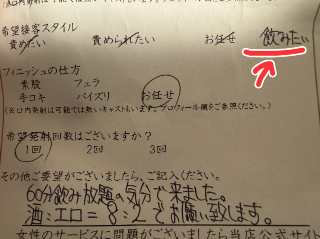 希望接客スタイル
責めたい 責められたい お任せ 飲みたい
フィニッシュの仕方
素股 フェラ
手コキ パイズリ お任せ
(※口内発射は可能では無いキャストもいます。プロフィール欄をご参照ください。)
希望発射回数はございますか?
1回 2回 3回
その他ご要望がございましたら、ご記入ください。
60分飲み放題の気分で来ました。
酒:エロ=8:2でお願い致します。
女性のサービスに問題がございましたら当店公式サイト